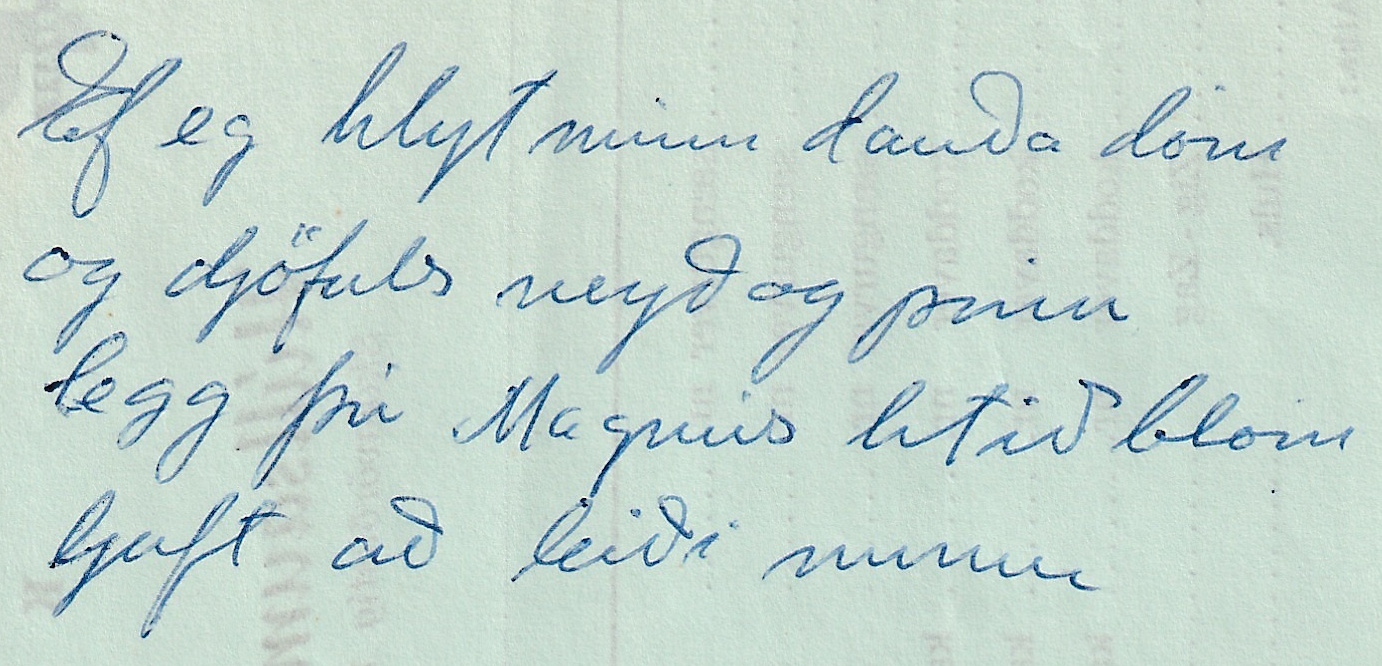 Ef eg hlyt minn dauða dóm
og djöfuls neyð og pínu
legg þú Magnús lítið blóm
ljúft að leiði mínu